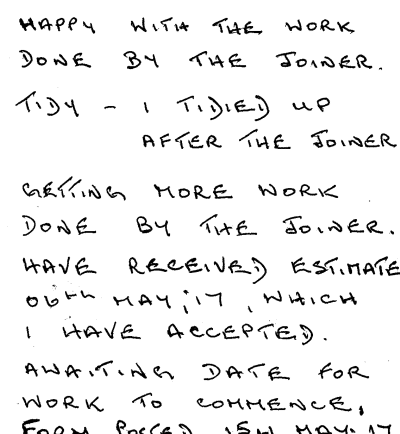 HAPPY WITH THE WORK
DONE BY THE JOINER.
TIDY - I TIDIED UP
AFTER THE JOINER
GETTING MORE WORK
DONE BY THE JOINER.
HAVE RECEIVED ESTIMATE
06TH MAY '17, WHICH
I HAVE ACCEPTED.
AWAITING DATE FOR
WORK TO COMMENCE,
FORM POSTED 15TH MAY '17